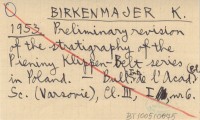 BIRKENMAJER K.
1953 Preliminary revision
of the stratigraphy of the
Pieniny Klippen-Belt series
in Poland. Bull. de l'Acad.
Sc. (Varsovie), Cl. III, I, no 6.